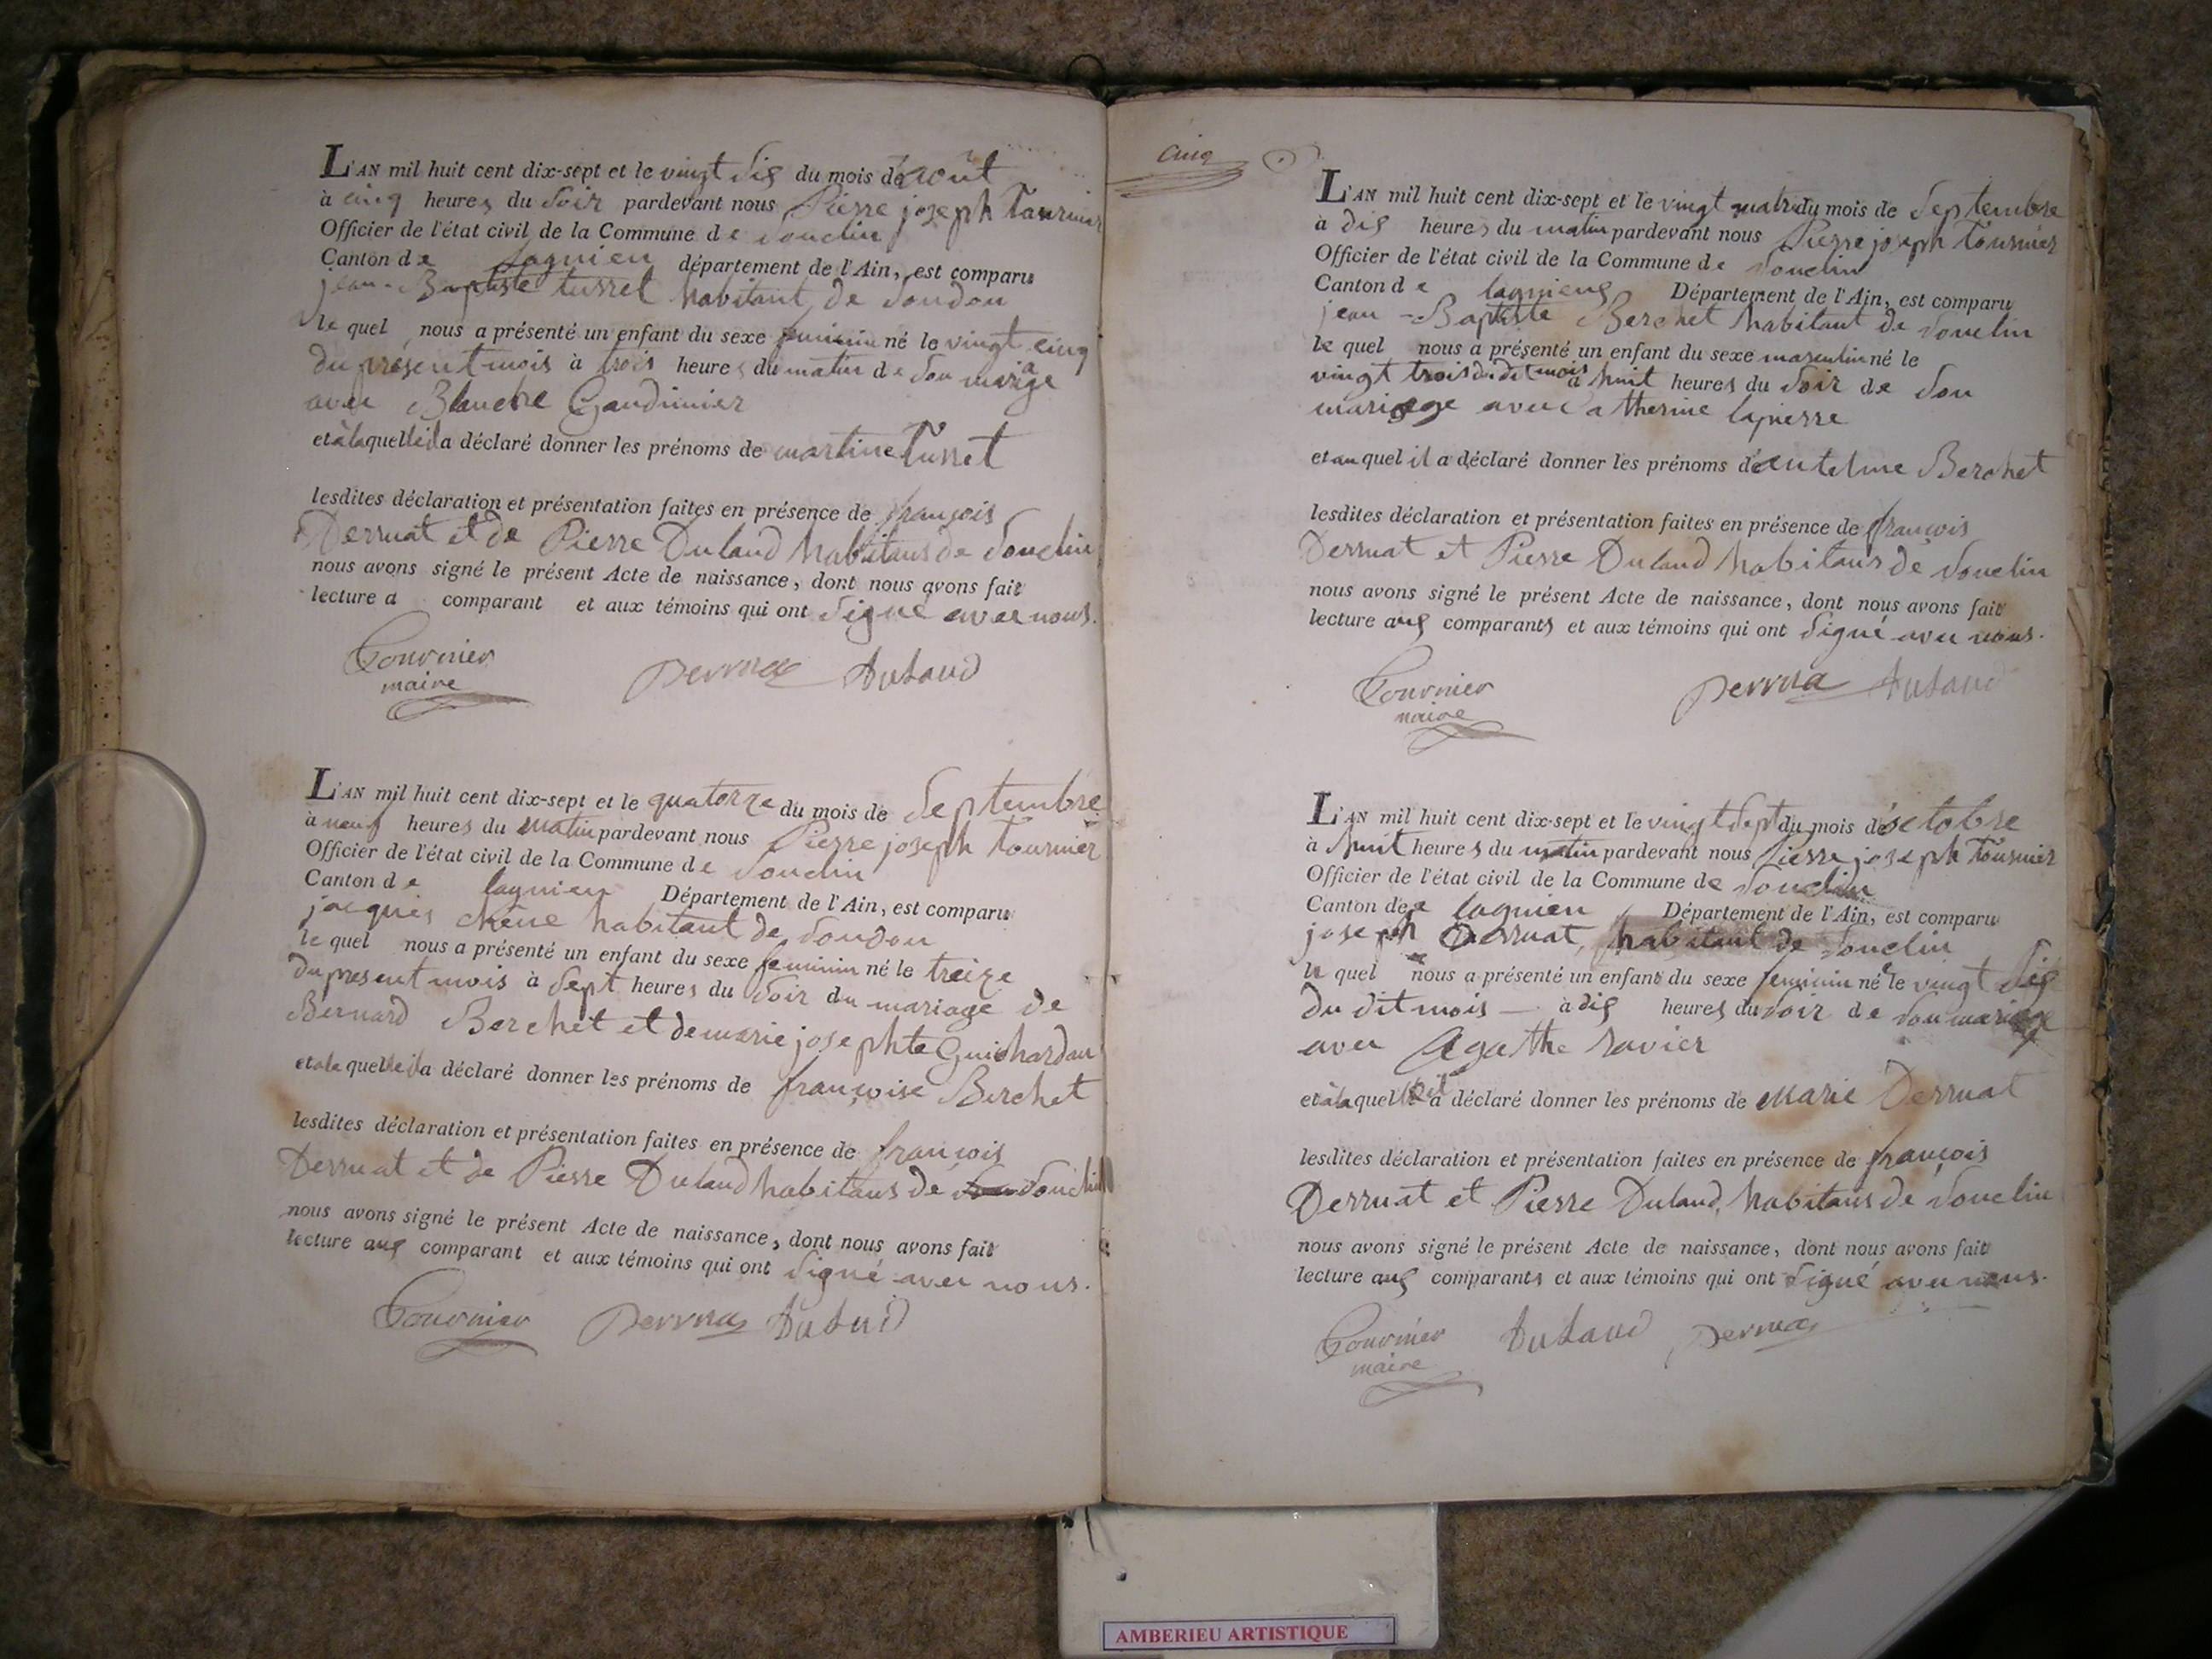 L'AN mil huit cent dix-sept et le vingt six du mois de août
à cinq heures du soir pardevant nous Pierre joseph Tournier
Officier de l'état civil de la Commune de Souclin
Canton de lagnieu département de l'Ain, est comparu
jean-Baptiste turret habitant de Soudon
le quel nous a présenté un enfant du sexe feminin né le vingt cinq
du présent mois à trois heures du matin de son mariage
avec Blanche Gaudinnier
et à la quelle il a déclaré donner les prénoms de martine Turret
lesdites déclaration et présentation faites en présence de françois
Derruat et de Pierre Dulaud habitans de Souclin
nous avons signé le présent Acte de naissance, dont nous avons fait
lecture a comparant et aux témoins qui ont signé avec nous.
Tournier
maire
Derrua Dulaud
L'AN mil huit cent dix-sept et le quatorze du mois de Septembre
à neuf heures du matin pardevant nous Pierre joseph Tournier
Officier de l'état civil de la Commune de Souclin
Canton de lagnieu Département de l'Ain, est comparu
jacques chêne habitant de Soudon
le quel nous a présenté un enfant du sexe feminin né le treize
du present mois à Sept heures du Soir du mariage de
Bernard Berchet et de marie josephte Guichardan
et a la quelle il a déclaré donner les prénoms de françoise Berchet
lesdites déclaration et présentation faites en présence de françois
Derruat et de Pierre Dulaud habitans de Souclin
nous avons signé le présent Acte de naissance, dont nous avons fait
lecture aux comparant et aux témoins qui ont signé avec nous.
Tournier Derrua Dulaud
cinq
L'AN mil huit cent dix-sept et le vingt quatre du mois de Septembre
à dix heures du matin pardevant nous Pierre joseph Tournier
Officier de l'état civil de la Commune de Souclin
Canton de lagnieux Département de l'Ain, est comparu
jean-Baptiste Berchet habitant de Souclin
le quel nous a présenté un enfant du sexe masculin né le
vingt trois du dit mois à huit heures du Soir de Son
mariage avec Catherine lapierre
et au quel il a déclaré donner les prénoms d'antelme Berchet
lesdites déclaration et présentation faites en présence de françois
Derruat et Pierre Dulaud habitans de Souclin
nous avons signé le présent Acte de naissance, dont nous avons fait
lecture aux comparants et aux témoins qui ont signé avec nous.
Tournier
maire
Derrua Dulaud
L'AN mil huit cent dix-sept et le vingt Sept du mois de octobre
à huit heures du matin pardevant nous Pierre joseph Tournier
Officier de l'état civil de la Commune de Souclin
Canton de lagnieu Département de l'Ain, est comparu
joseph Derruat, habitant de Souclin
le quel nous a présenté un enfant du sexe feminin né le vingt Six
du dit mois à dix heures du soir de son mariage
avec Agathe ravier
et à la quelle il a déclaré donner les prénoms de Marie Derruat
lesdites déclaration et présentation faites en présence de françois
Derruat et Pierre Dulaud, habitans de Souclin
nous avons signé le présent Acte de naissance, dont nous avons fait
lecture aux comparants et aux témoins qui ont signé avec nous.
Tournier
maire
Dulaud Derrua
AMBERIEU ARTISTIQUE